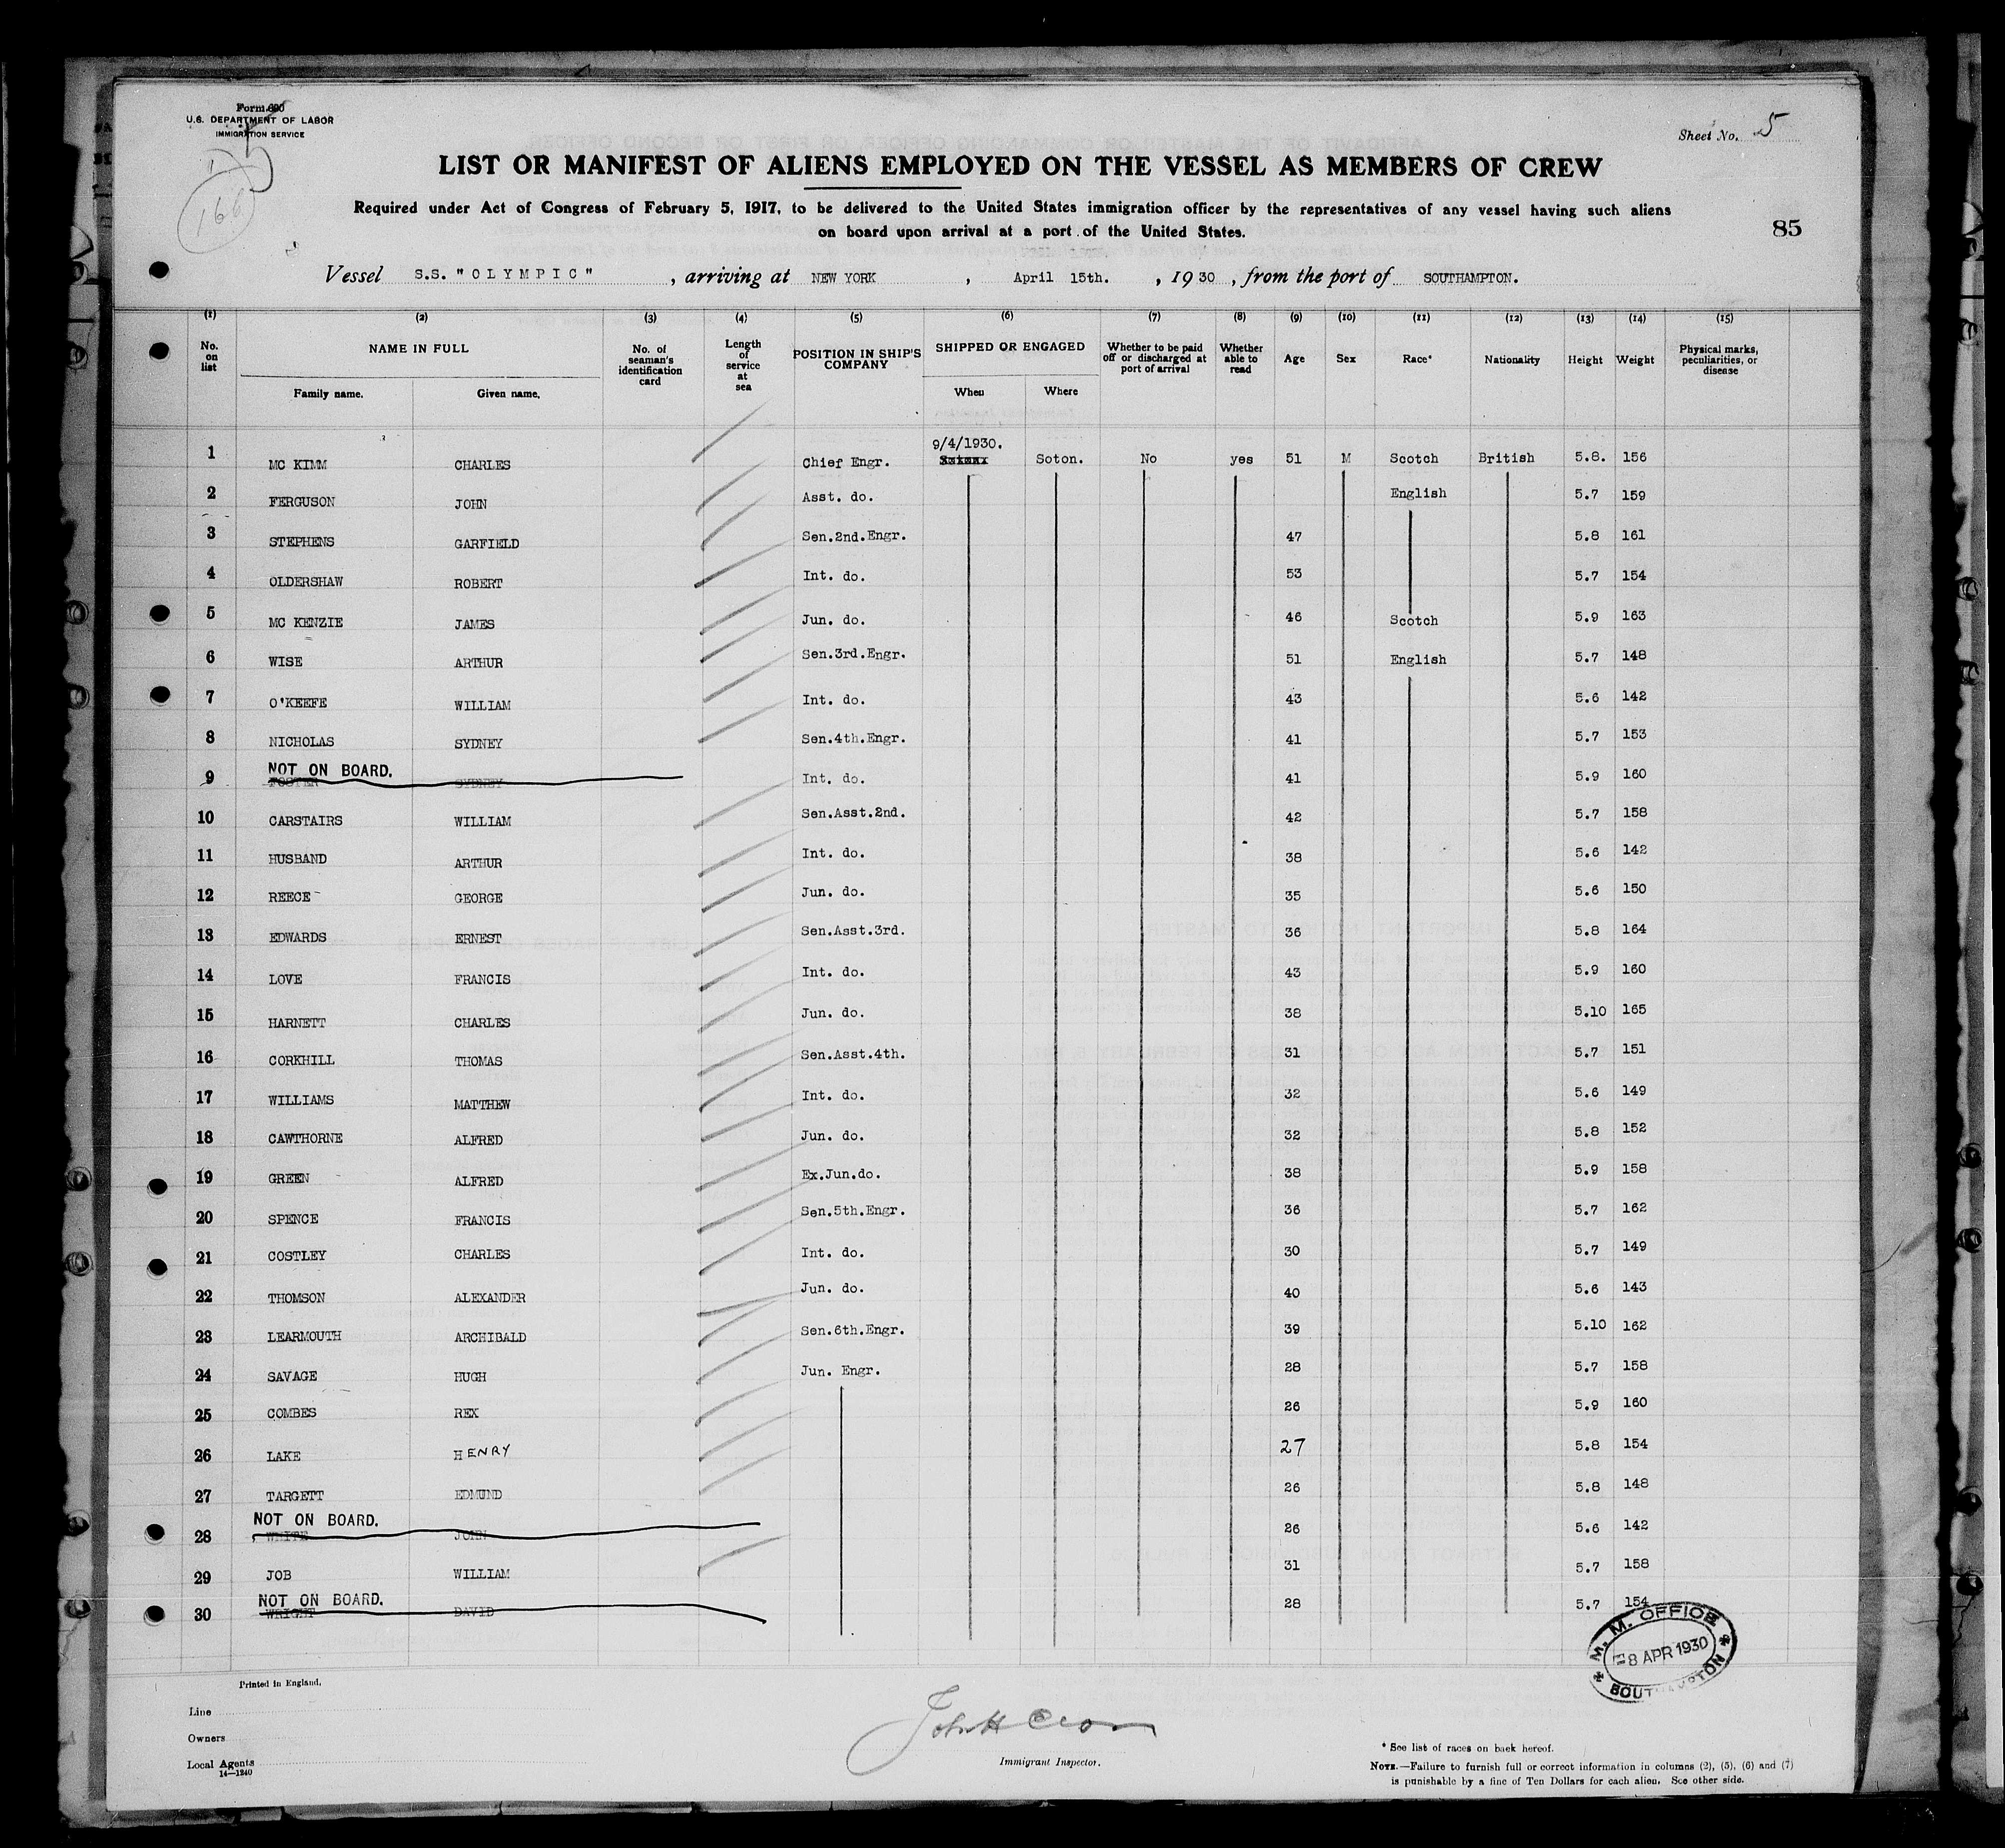 Form 690
U.S. DEPARTMENT OF LABOR
IMMIGRATION SERVICE
Sheet No. 5
166
LIST OR MANIFEST OF ALIENS EMPLOYED ON THE VESSEL AS MEMBERS OF CREW
Required under Act of Congress of February 5, 1917, to be delivered to the United States immigration officer by the representatives of any vessel having such aliens
on board upon arrival at a port of the United States.
85
Vessel S.S. "OLYMPIC" , arriving at NEW YORK , April 15th. , 1930 , from the port of SOUTHAMPTON.
(1) (2) (3) (4) (5) (6) (7) (8) (9) (10) (11) (12) (13) (14) (15)
No. on list NAME IN FULL Family name. Given name. No. of seaman's identification card Length of service at sea POSITION IN SHIP'S COMPANY SHIPPED OR ENGAGED When Where Whether to be paid off or discharged at port of arrival Whether able to read Age Sex Race* Nationality Height Weight Physical marks, peculiarities, or disease
1 MC KIMM CHARLES Chief Engr. 9/4/1930. Soton. No yes 51 M Scotch British 5.8. 156
2 FERGUSON JOHN Asst. do. English 5.7 159
3 STEPHENS GARFIELD Sen.2nd.Engr. 47 5.8 161
4 OLDERSHAW ROBERT Int. do. 53 5.7 154
5 MC KENZIE JAMES Jun. do. 46 Scotch 5.9 163
6 WISE ARTHUR Sen.3rd.Engr. 51 English 5.7 148
7 O'KEEFE WILLIAM Int. do. 43 5.6 142
8 NICHOLAS SYDNEY Sen.4th.Engr. 41 5.7 153
NOT ON BOARD.
9 FOSTER SYDNEY Int. do. 41 5.9 160
10 CARSTAIRS WILLIAM Sen.Asst.2nd. 42 5.7 158
11 HUSBAND ARTHUR Int. do. 38 5.6 142
12 REECE GEORGE Jun. do. 35 5.6 150
13 EDWARDS ERNEST Sen.Asst.3rd. 36 5.8 164
14 LOVE FRANCIS Int. do. 43 5.9 160
15 HARNETT CHARLES Jun. do. 38 5.10 165
16 CORKHILL THOMAS Sen.Asst.4th. 31 5.7 151
17 WILLIAMS MATTHEW Int. do. 32 5.6 149
18 CAWTHORNE ALFRED Jun. do. 32 5.8 152
19 GREEN ALFRED Ex.Jun.do. 38 5.9 158
20 SPENCE FRANCIS Sen.5th.Engr. 36 5.7 162
21 COSTLEY CHARLES Int. do. 30 5.7 149
22 THOMSON ALEXANDER Jun. do. 40 5.6 143
23 LEARMOUTH ARCHIBALD Sen.6th.Engr. 39 5.10 162
24 SAVAGE HUGH Jun. Engr. 28 5.7 158
25 COMBES REX 26 5.9 160
26 LAKE HENRY 27 5.8 154
27 TARGETT EDMUND 26 5.8 148
NOT ON BOARD.
28 WHITE JOHN 26 5.6 142
29 JOB WILLIAM 31 5.7 158
NOT ON BOARD.
30 WRIGHT DAVID 28 5.7 154
M. M. OFFICE
8 APR 1930
SOUTHAMPTON
Printed in England.
Line
Owners
Local Agents
14—1240
John H
Immigrant Inspector.
* See list of races on back hereof.
NOTE.—Failure to furnish full or correct information in columns (2), (5), (6) and (7)
is punishable by a fine of Ten Dollars for each alien. See other side.